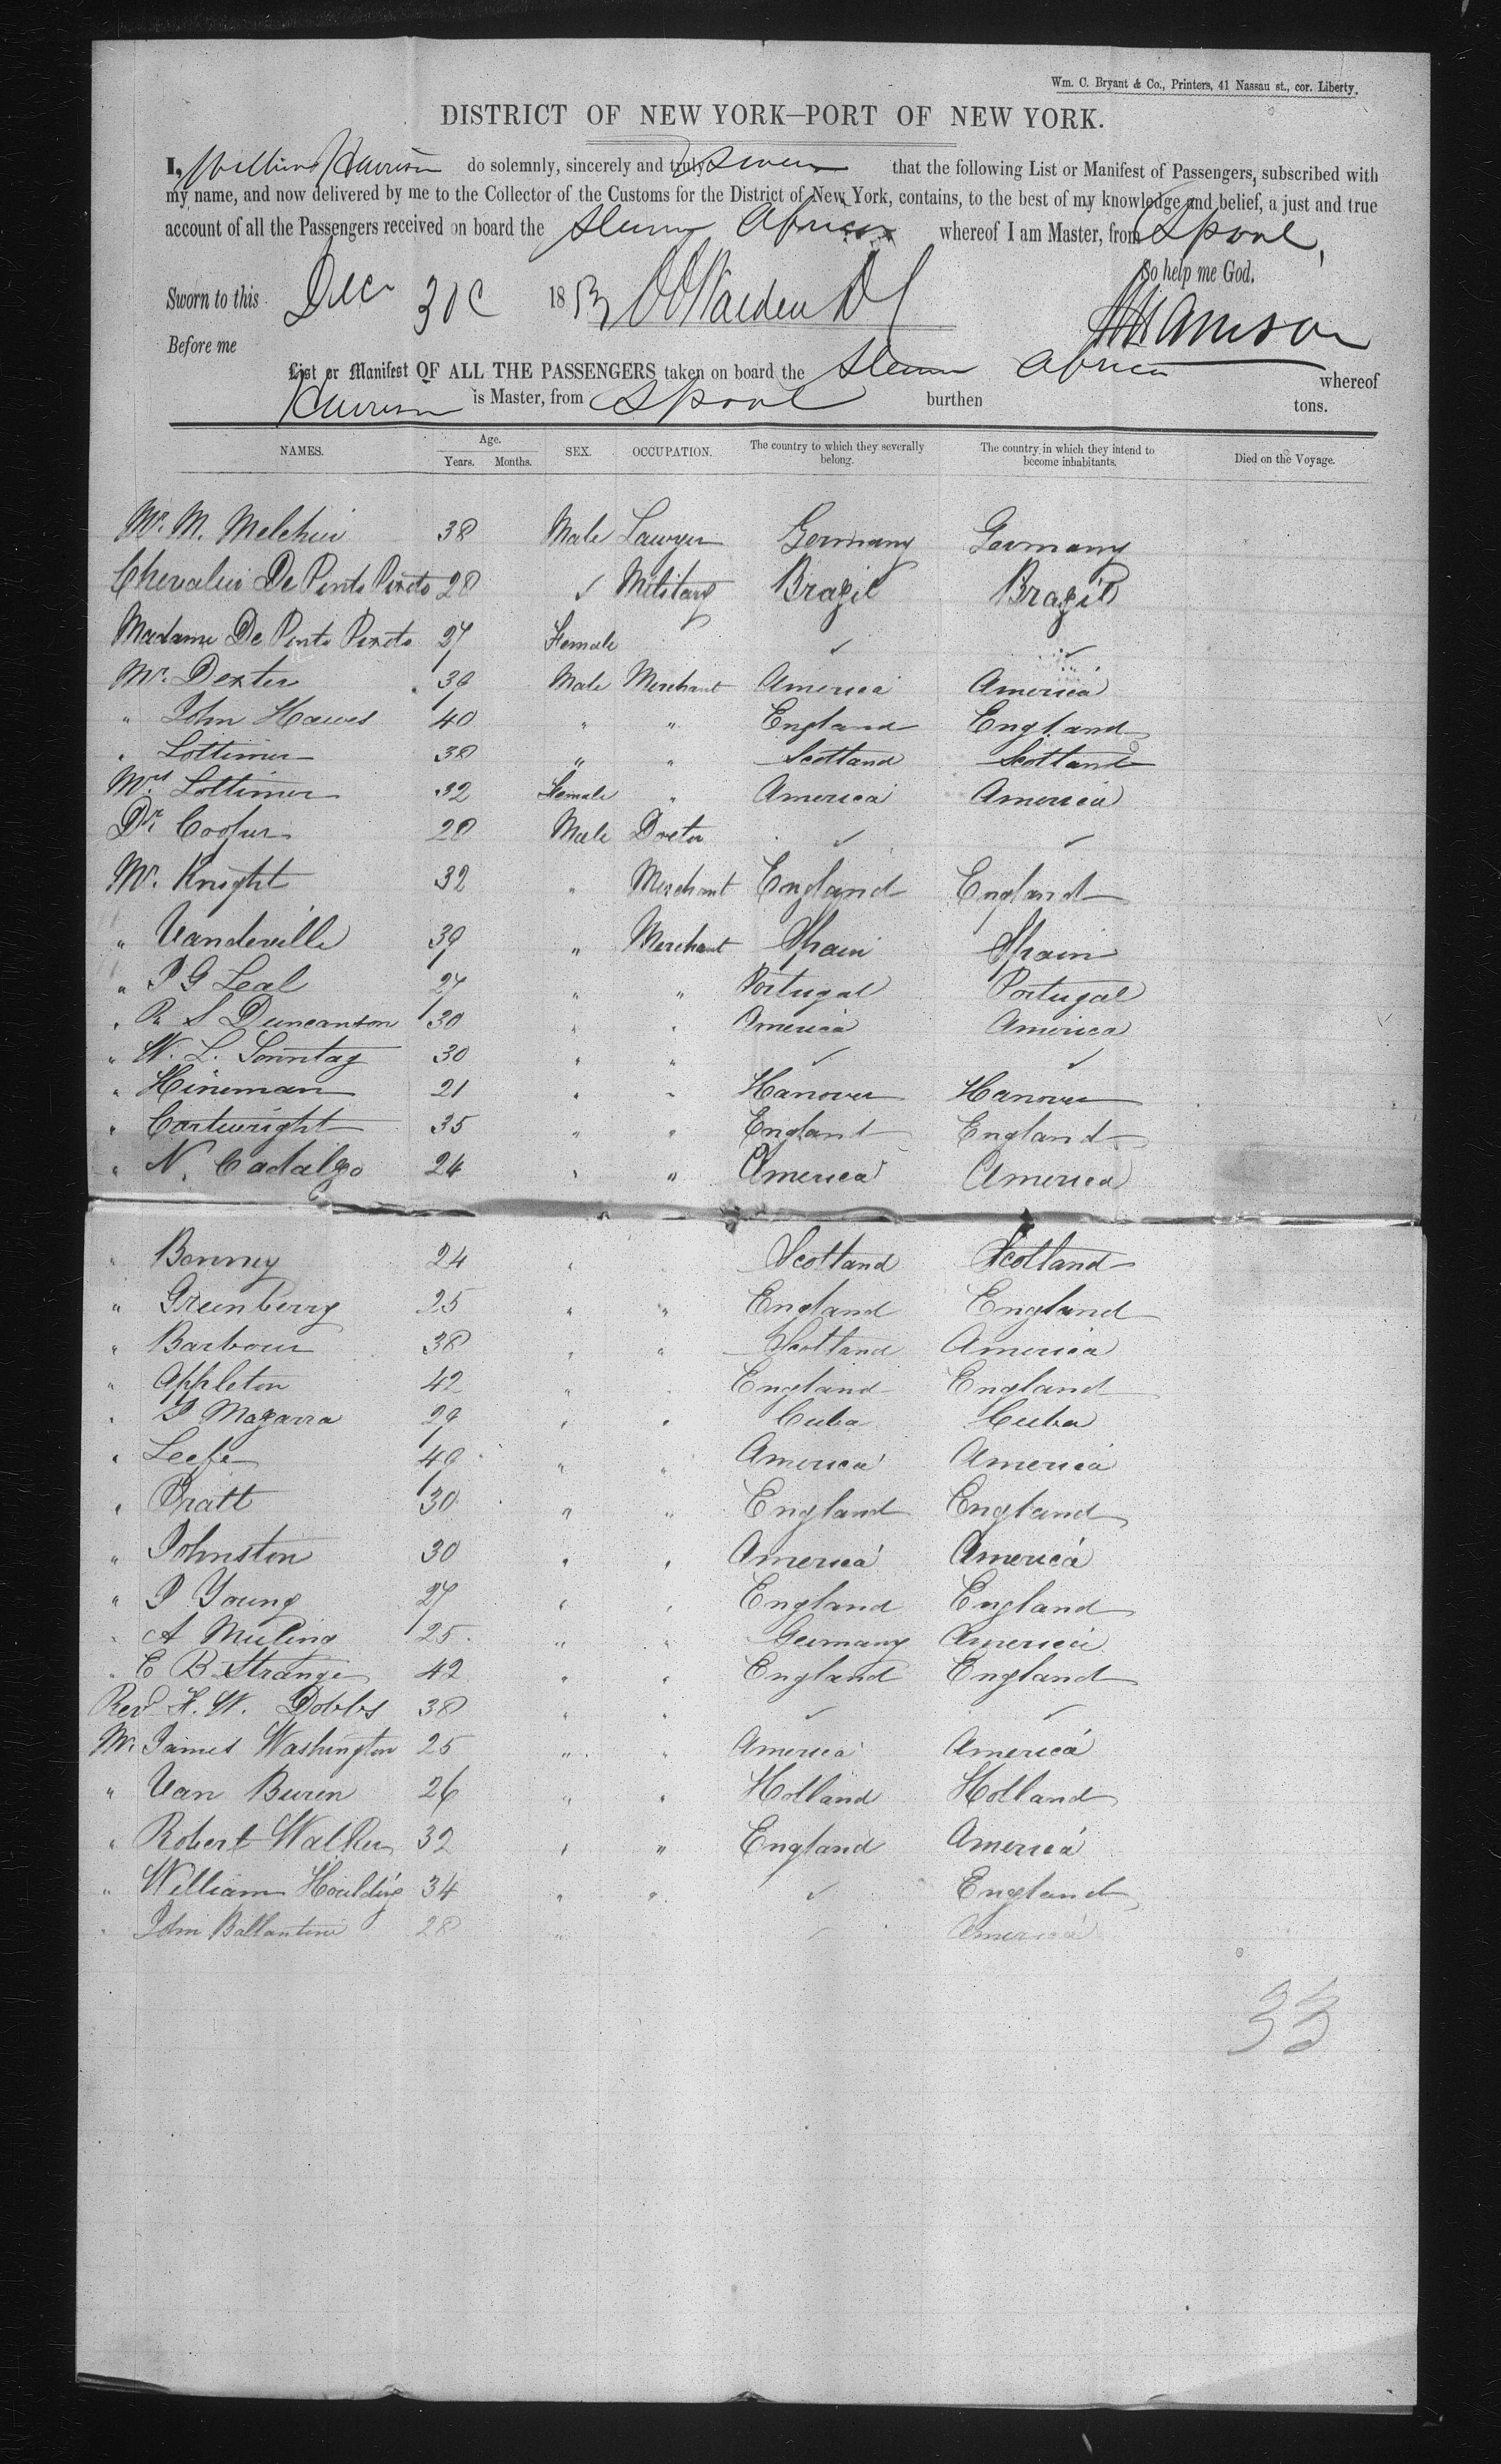 Wm. C. Bryant & Co., Printers, 41 Nassau st., cor. Liberty.
DISTRICT OF NEW YORK—PORT OF NEW YORK.
I, William Harrison do solemnly, sincerely and truly swear that the following List or Manifest of Passengers, subscribed with
my name, and now delivered by me to the Collector of the Customs for the District of New York, contains, to the best of my knowledge and belief, a just and true
account of all the Passengers received on board the Steamer Africa whereof I am Master, from Lpool,
So help me God.
Sworn to this Dec 30 1853
Harrison
Before me
List or Manifest OF ALL THE PASSENGERS taken on board the Steamer Africa whereof
Harrison is Master, from Lpool burthen tons.
NAMES. Age. Years. Months. SEX. OCCUPATION. The country to which they severally belong. The country in which they intend to become inhabitants. Died on the Voyage.
Mr. M. Melchior 38 Male Lawyer Germany Germany
Chevalier De Pento Pixoto 28 ✓ Military Brazil Brazil
Madame De Pento Pixoto 27 Female ✓ ✓
Mr. Dexter 39 Male Merchant America America
" John Hawes 40 " " England England
" Lottimer 38 " " Scotland Scotland
Mrs Lottimer 32 Female " America America
Dr. Cooper 28 Male Doctor ✓ ✓
Mr. Knight 32 " Merchant England England
" Vanderville 39 " Merchant Spain Spain
" P G Leal 27 " " Portugal Portugal
" R S Duncanson 30 " " America America
" W. L. Sonntag 30 " " ✓ ✓
" Hineman 21 " " Hanover Hanover
" Cartwright 35 " " England England
" N. Cadalgo 24 " " America America
" Benney 24 " Scotland Scotland
" Greenberry 25 " " England England
" Barbour 38 " " Scotland America
" Appleton 42 " " England England
" P Magarra 29 " " Cuba Cuba
" Leefe 49 " " America America
" Pratt 30 " " England England
" Johnston 30 " " America America
" P Young 27 " " England England
" A Muling 25 " " Germany America
" E B Strange 42 " " England England
Revd H. W. Dobbs 38 " " ✓ ✓
Mr. James Washington 25 " " America America
" Van Buren 26 " " Holland Holland
" Robert Walker 32 " " England America
" William Houlding 34 " " ✓ England
" John Ballantine 28 " ✓ America
33